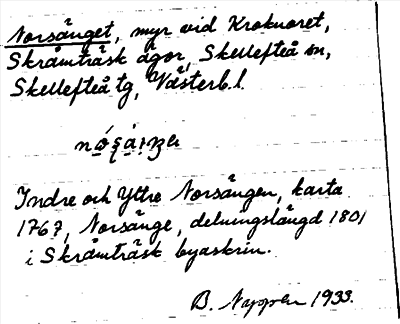 Norsänget, myr vid Krokvoret,
Skråmträsk ägor, Skellefteå sn,
Skellefteå tg, Västerb.l.
Indre och Yttre Norsängen, karta
1767, Norsänge, delningslängd 1801
i Skråmträsk byaskrin.
B. Nyppen 1933.